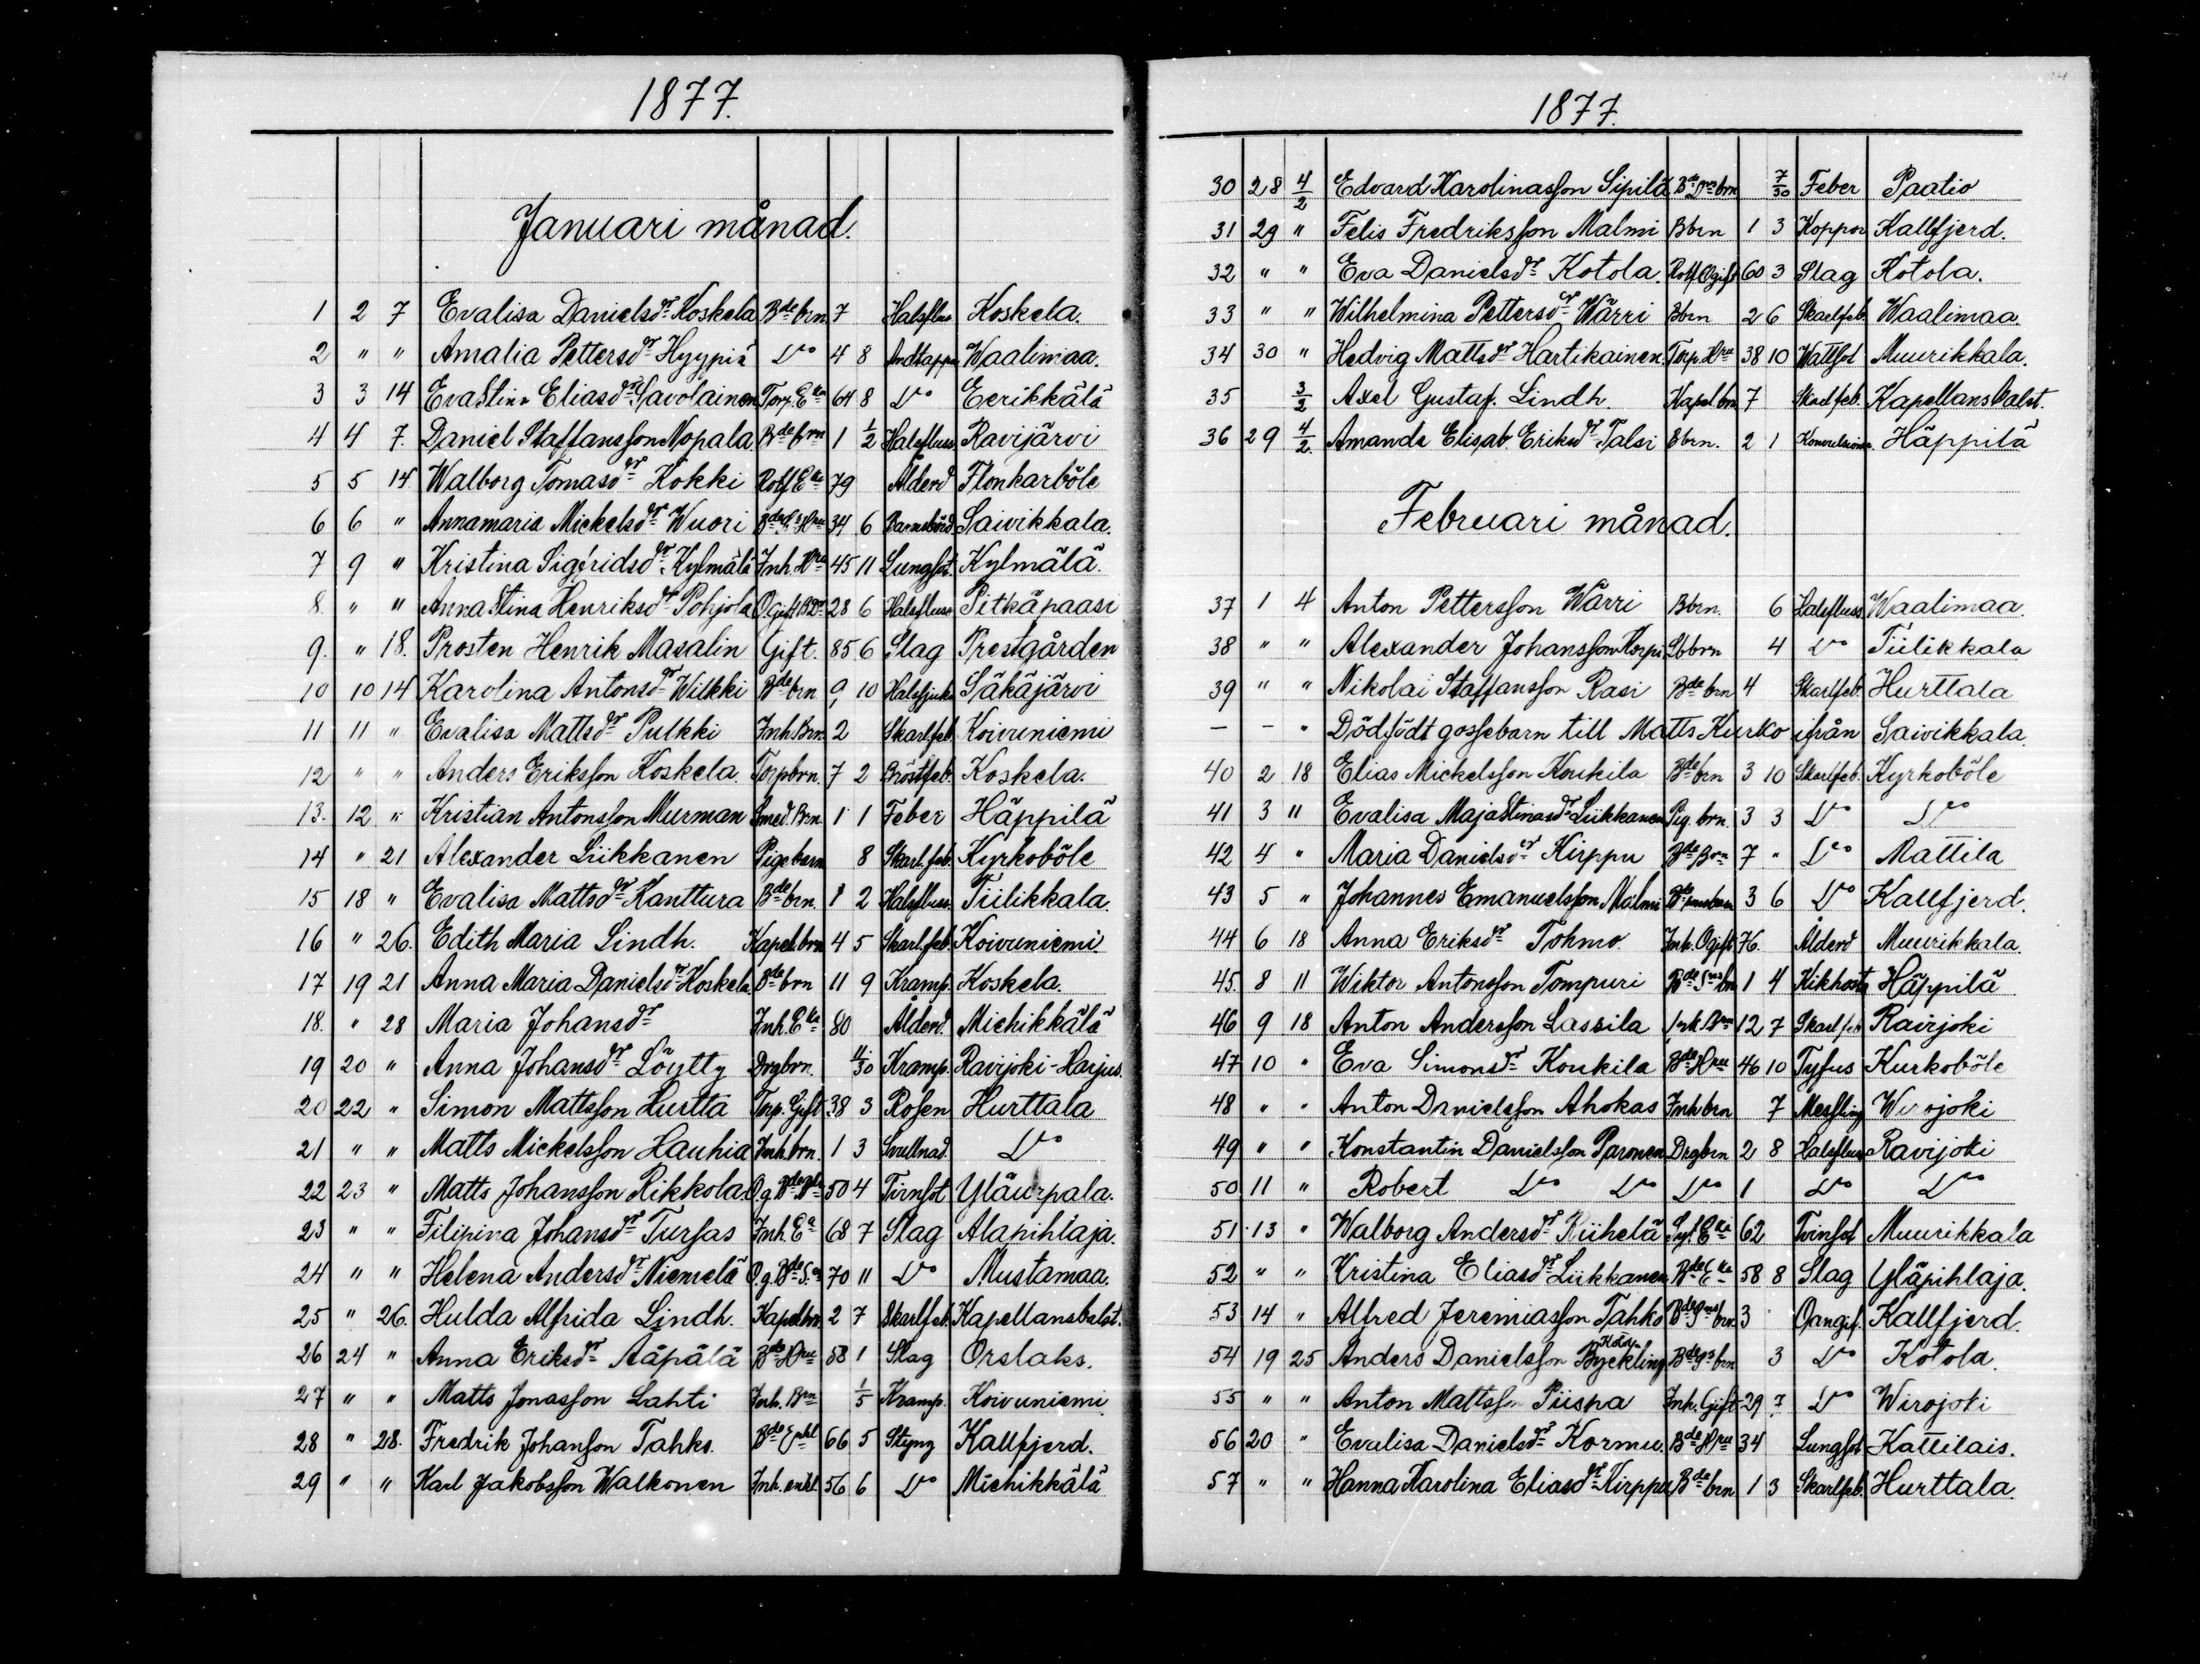 1877.
Januari månad.
1 2 7 Evalisa Danielsdr Koskela Bde brn 7 Halsflus Koskela.
2 " " Amalia Pettersdr Hyypiä Do 4 8 Andtäppa Waalimaa.
3 3 14 EvaStina Eliasdr Savolainen Torp. Eka 64 8 Do Eerikkälä
4 4 7. Daniel Staffansson Nopala Bde brn 1 1/2 Halsfluss Ravijärvi
5 5 14 Walborg Tomasdr Kokki Rotf Eka 79 Ålderd Flonkarböle
6 6 " Annamaria Mickelsdr Wuori 34 6 Barnsbörd Saivikkala.
7 9 " Kristina Sigfridsdr Kylmälä Inh. Hru 45 11 Lungsot. Kylmälä.
8. " " AnnaStina Henriksdr Pohjola Ogift BDr 28 6 Halsfluss Pitkäpaasi
9. " 18. Prosten Henrik Masalin Gift. 85 6 Slag Prestgården
10 10 14 Karolina Antonsdr Wilkki Bde brn 9, 10 Halssjuka Säkäjärvi
11 11 " Evalisa Mattsdr Pulkki Inh Brn. 2 Skarl.feb. Koivuniemi
12 " " Anders Eriksson Koskela. Torpbrn. 7 2 Bröstfeb. Koskela.
13. 12 " Kristian Antonsson Murman Smed. Brn. 1 1 Feber Häppilä
14 " 21 Alexander Liikkanen Pigebarn 8 Skarl. feb. Kyrkoböle
15 18 " Evalisa Mattsdr Kanttura Bde brn. 1 2 Halsfluss. Tiilikkala.
16 " 26. Edith Maria Lindh. Kapel. brn 4 5 Skarl. feb. Koivuniemi
17 19 21 Anna Maria Danielsdr Koskela Bde brn 11 9 Kramp. Koskela.
18. " 28 Maria Johansdr Inh. Eka 80 Ålderd. Miehikkälä
19 20 " Anna Johansdr Löytty Drgbrn. 11/30 Kramp. Ravijoki-Harjus.
20 22 " Simon Mattsson Hurtta Torp. Gift 38 3 Rosen Hurttala
21 " " Matts Mickelsson Hauhia Inh. brn. 1 3 Svullnad. Do
22 23 " Matts Johansson Rikkola 50 4 Tvinsot Yläurpala.
23 " " Filipina Johansdr Tursas Inh. Ea 68 7 Slag Alapihlaja.
24 " " Helena Andersdr Niemelä O.g Bde S. 70 11 Do Mustamaa.
25 " 26. Hulda Alfrida Lindh. Kapelbrn. 2 7 Skarlfeb. Kapellansbolst.
26 24 " Anna Eriksdr Ääpälä Bde Hru 58 1 Slag Orslaks.
27 " " Matts Jonasson Lahti Inh. Brn 1/5 Kramp. Koivuniemi
28 " 28. Fredrik Johanson Tahko. Bde Enkl 66 5 Styng Kallfjerd.
29 " " Karl Jakobsson Walkonen Inh. enkl. 56 6 Do Miehikkälä
1877.
30 28 4/2 Edvard Karolinasson Sipilä 7/30 Feber Paatio
31 29 " Felis Fredriksson Malmi Bbrn 1 3 Koppor Kallfjerd.
32 " " Eva Danielsdr Kotola. Rotf Ogift 60 3 Slag Kotola.
33 " " Wilhelmina Pettersdr Wärri Bbrn 2 6 Skarlfeb. Waalimaa.
34 30 " Hedvig Mattsdr Hartikainen. Torp. Hru 38 10 Wattsot Muurikkala.
35 3/2 Axel Gustaf. Lindh. Kapel brn 7 Skarl feb. Kapellansbolst.
36 29 4/2. Amanda Elisab. Eriksdr Talsi Bbrn. 2 1 Konvulsioner. Häppilä
Februari månad.
37 1 4 Anton Pettersson Wärri Bbrn. 6 Halsfluss Waalimaa.
38 " " Alexander Johansson Korpi Lbbrn 4 Do Tiilikkala
39 " " Nikolai Staffansson Rasi Bde brn 4 Skarlfeb. Hurttala
— — " Dödfödt gossebarn till Matts Kurko ifrån Saivikkala.
40 2 18 Elias Mickelsson Koukila Bde brn 3 10 Skarlfeb. Kyrkoböle
41 3 11 Evalisa MajaStinasdr Liikkanen Pig. brn. 3 3 Do Do
42 4 " Maria Danielsdr Kirppu Bde Brn 7 " Do Mattila
43 5 " Johannes Emanuelsson Malmi 3 6 Do Kallfjerd.
44 6 18 Anna Eriksdr Tohmo. Inh. Ogift 76. Ålderd Muurikkala.
45. 8 11 Wiktor Antonsson Tompuri Bde Sns brn 1 4 Kikhosta Häppilä
46 9 18 Anton Andersson Lassila Inh. Brn 12 7 Skarl feb Ravijoki
47 10 " Eva Simonsdr Koukila Bde Hru 46 10 Tyfus Kurkoböle
48 " " Anton Danielsson Ahokas Inh brn 7 Messling Wirojoki
49 " " Konstantin Danielsson Paronen Drgbrn 2 8 Halsfluss Ravijoki
50 11 " Robert Do Do Do 1 Do Do
51 13 " Walborg Andersdr Riihelä Syt Eka 62 Tvinsot Muurikkala
52 " " Kristina Eliasdr Liikkanen Bde Eka 58 8 Slag Yläpihlaja.
53 14 " Alfred Jeremiasson Tahko Bde Sns brn. 3 Oangif. Kallfjerd.
54 19 25 Anders Danielsson Byckling Bde Ss brn 3 Do Kotola.
55 " " Anton Mattsson Piispa Inh. Gift 29 7 Do Wirojoki
56 20 " Evalisa Danielsdr Kormu. Bde Hru 34 Lungsot Kattilais.
57 " " Hanna Karolina Eliasdr Kirppu Bde brn 1 3 Skarlfeb. Hurttala.